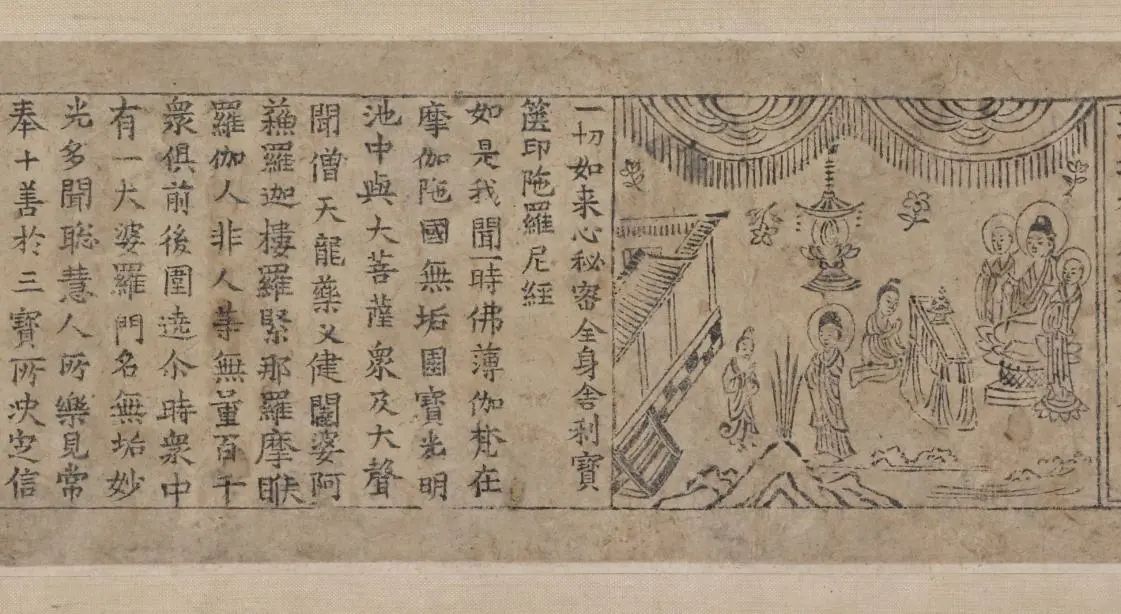 一切如来心秘宻全身舎利寶
篋印陁羅尼経
如是我聞一時佛薄伽梵在
摩伽陁國無垢園寶光明
池中與大菩薩衆及大聲
聞僧天龍藥叉健闥婆阿
蘓羅迦樓羅緊那羅摩睺
羅伽人非人䓁無量百千
衆俱前後圍遶尒時衆中
有一大婆羅門名無垢妙
光多聞聡慧人所樂見常
奉十善於三寶所决㝎信